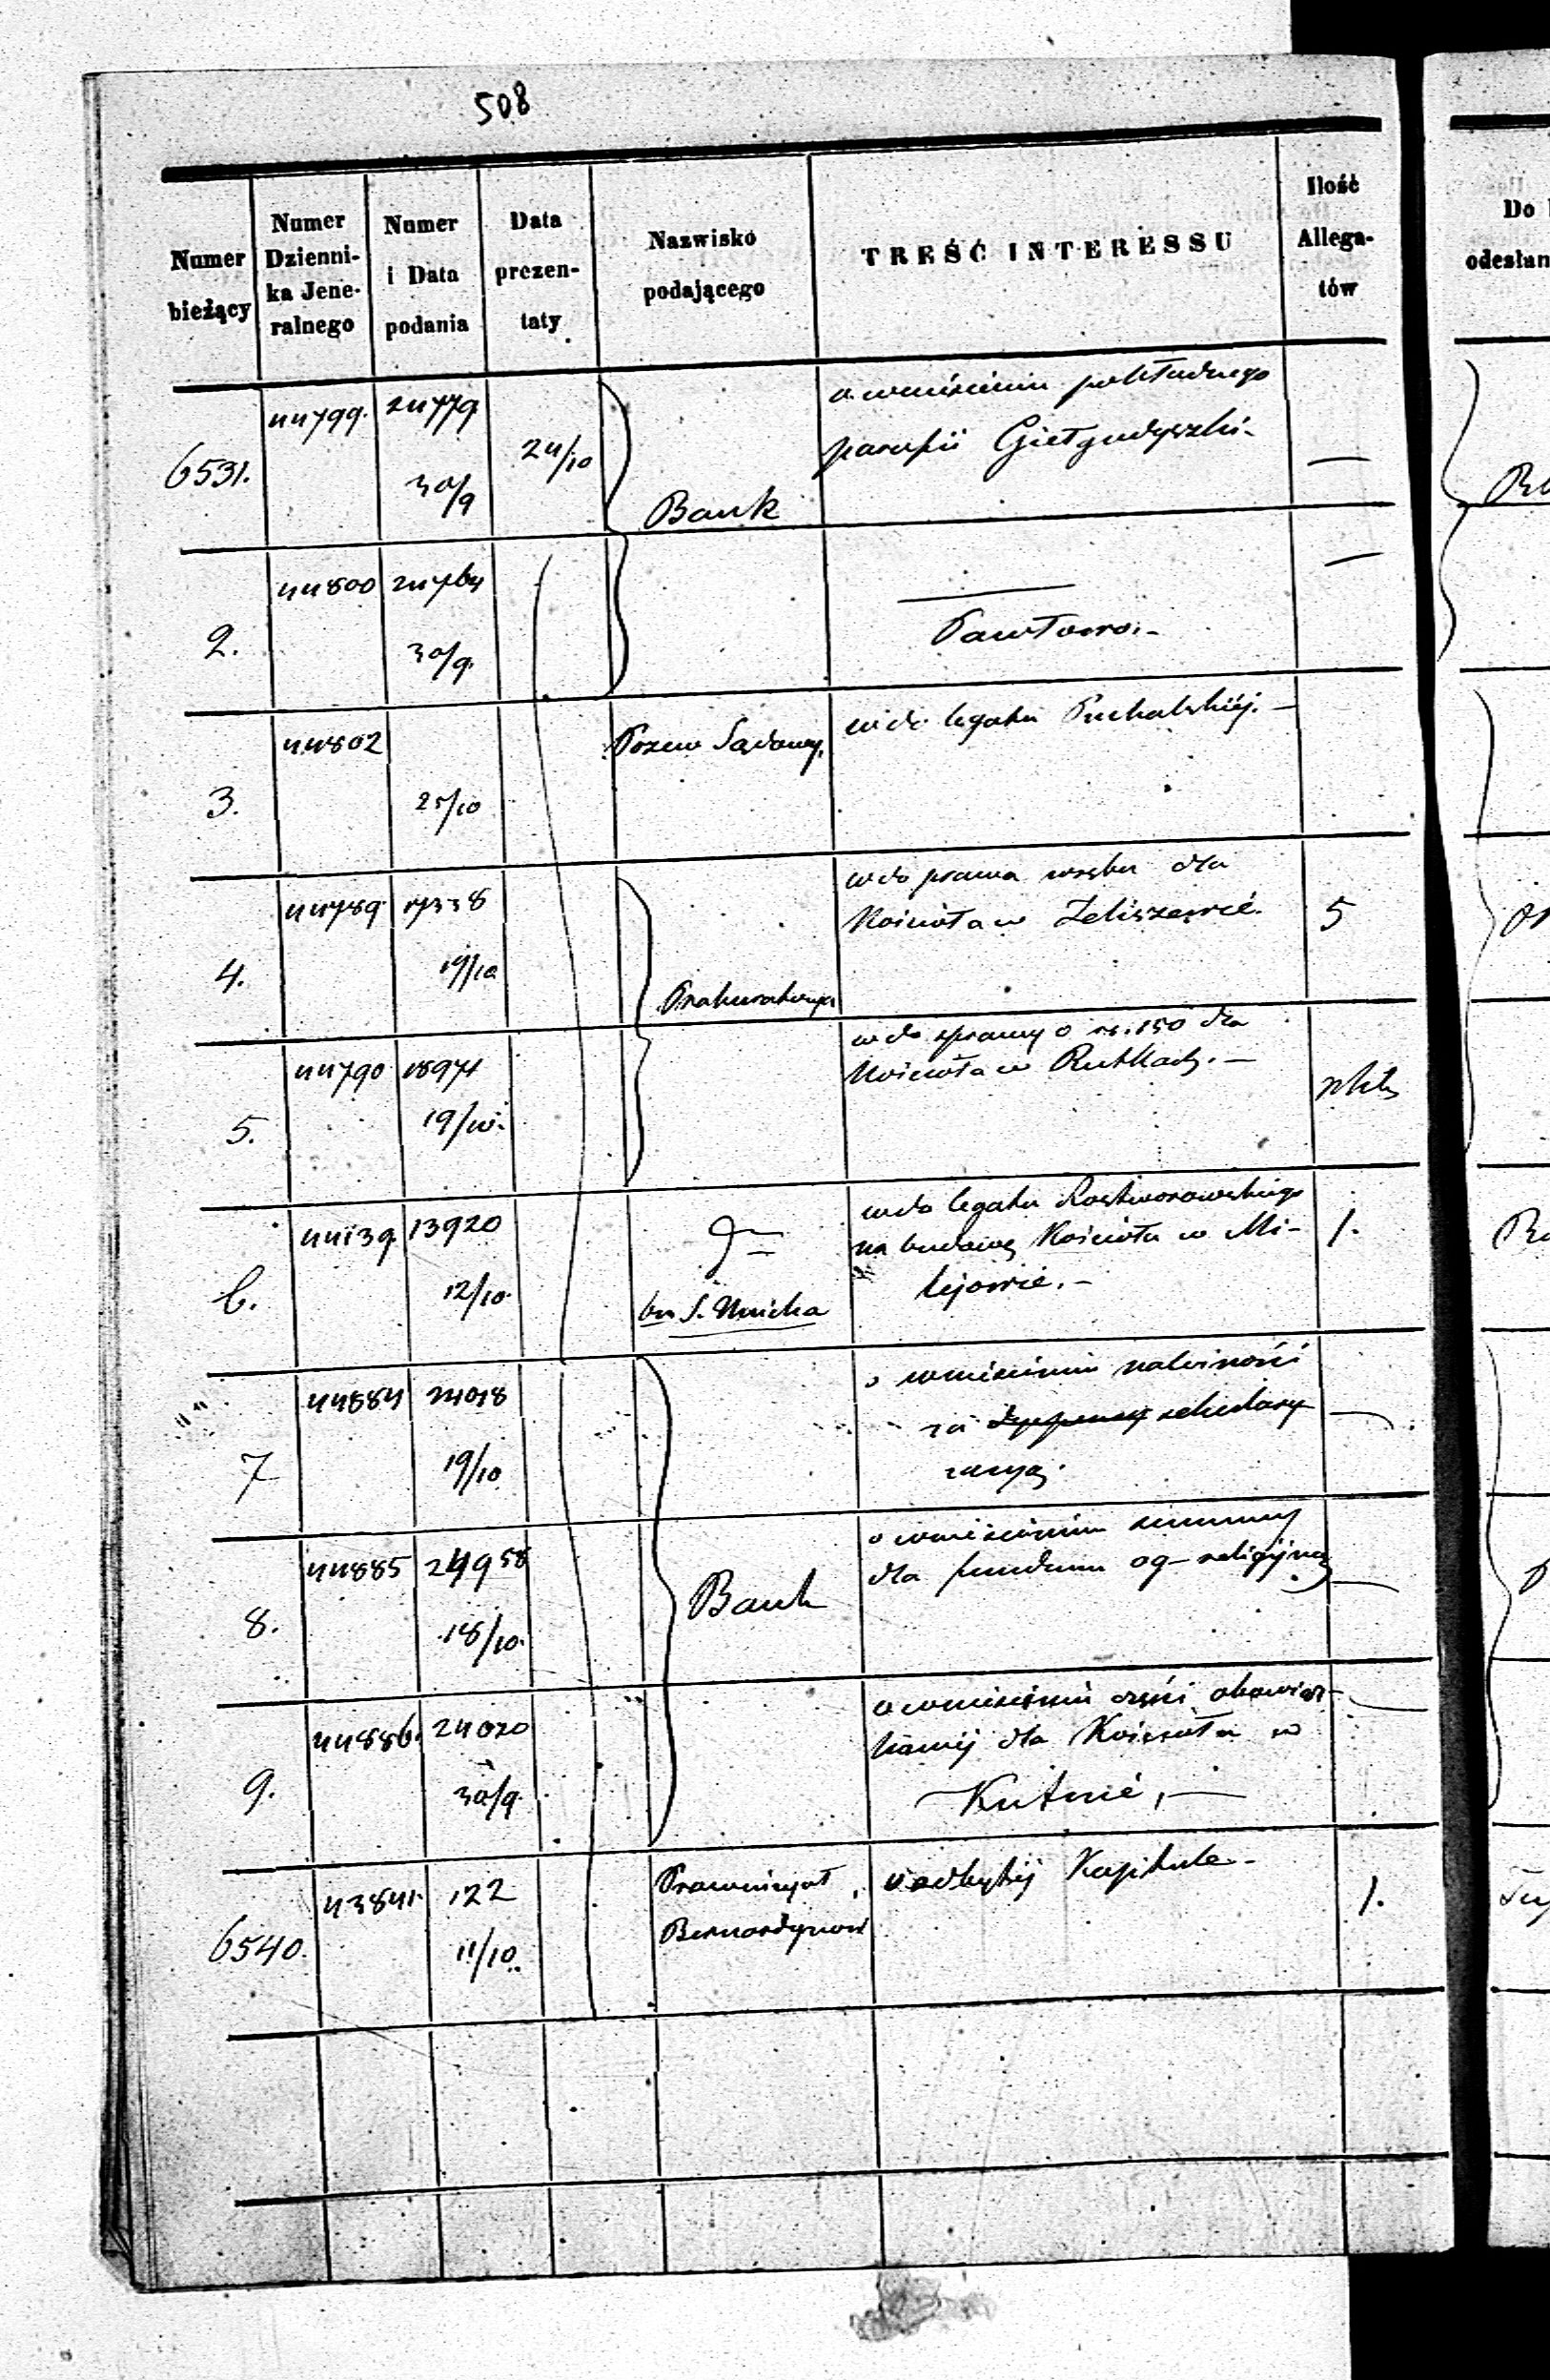 508
Numer bieżący
Numer Dzienni-ka Jene-ralnego
Numer i Data podania
Data prezen-taty
Nazwisko podającego
TREŚĆ INTERESSU
Ilość Allega-tów
Do
odesłan
6531.
44799.
24779.
30/9
24/10
Bank
o wniesieniu pokładnego
parafii Giełgudyszki.
—
2.
44800
24764
30/9.
Pawłowo.
—
3.
44802
25/10
Pozew Sądowy.
wdo legatu Puchalskiéj. —
4.
44789.
17338
19/10
Prokuratorya
wdo prawa wrębu dla
Kościoła w Zeliszewie.
5
5.
44790
18971
19/10.
wdo sprawy o rs. 150 dla
Kościoła w Rutkach. —
6.
44139.
13920
12/10.
bn S. Unicka
wdo legatu Rostworowskiego
na budowę Kościoła w Mi-
lejowie. —
1.
7
44884
24018
19/10
o wniesieniu należności
za sekulary-
zacyą.
—
8.
44885
24958
18/10.
Bank
o wniesieniu summy
dla funduszu og-religijneg
—
9.
44886.
24020
30/9.
o wniesieniu części obowiąz-
kowéj dla Kościoła w
Kutnie, —
6540.
43841.
122
11/10.
Prowincyał
Bernardynów
o odbytéj Kapitule. -
1.